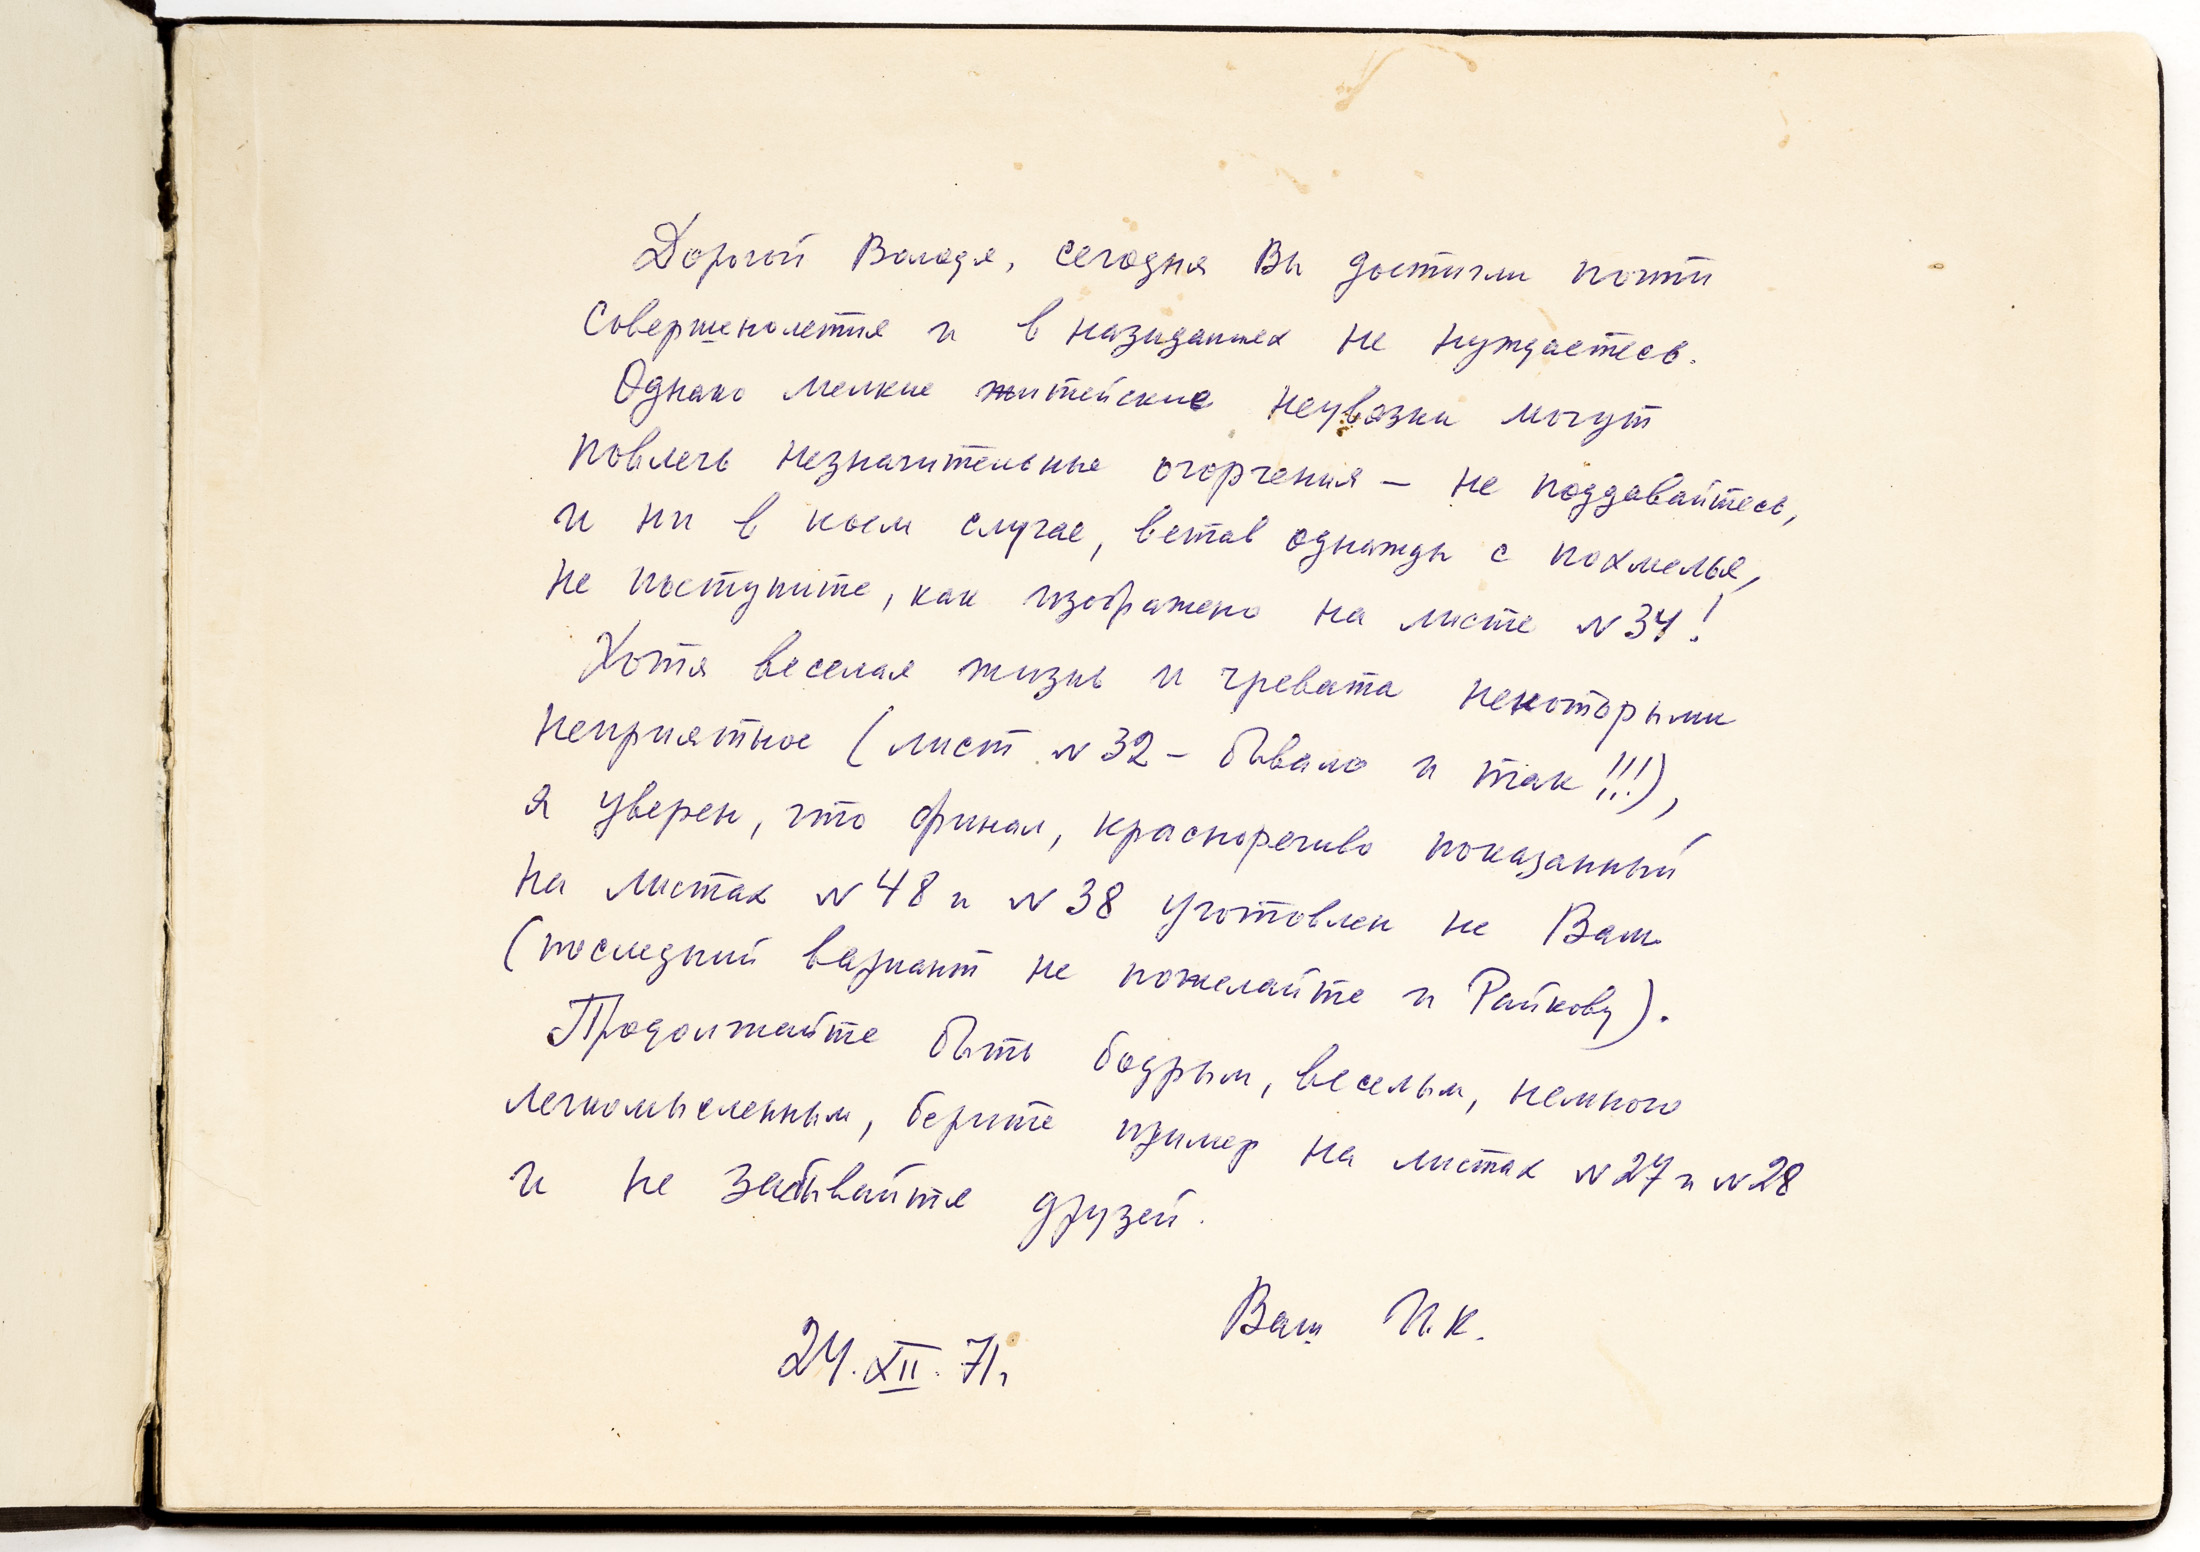 Дорогой Володя, сегодня Вы достигли почти
совершенолетия и в назиданиях не нуждаетесь.
Однако мелкие житейские неувязки могут
повлечь незначительные огорчения – не поддавайтесь,
и ни в коем случае, встав однажды с похмелья,
не поступите, как изображено на листе №34!
Хотя веселая жизнь и чревата некоторыми
неприятное (лист №32 – бывало и так!!!),
я уверен, что финал, красноречиво показанный
на листах №48 и №38 уготовлен не Вам
(последний вариант не пожелайте и Райкову).
Продолжайте быть бодрым, веселым, немного
легкомысленным, берите пример на листах №27 и №28
и не забывайте друзей.
Ваш И.К.
24.XII.71г